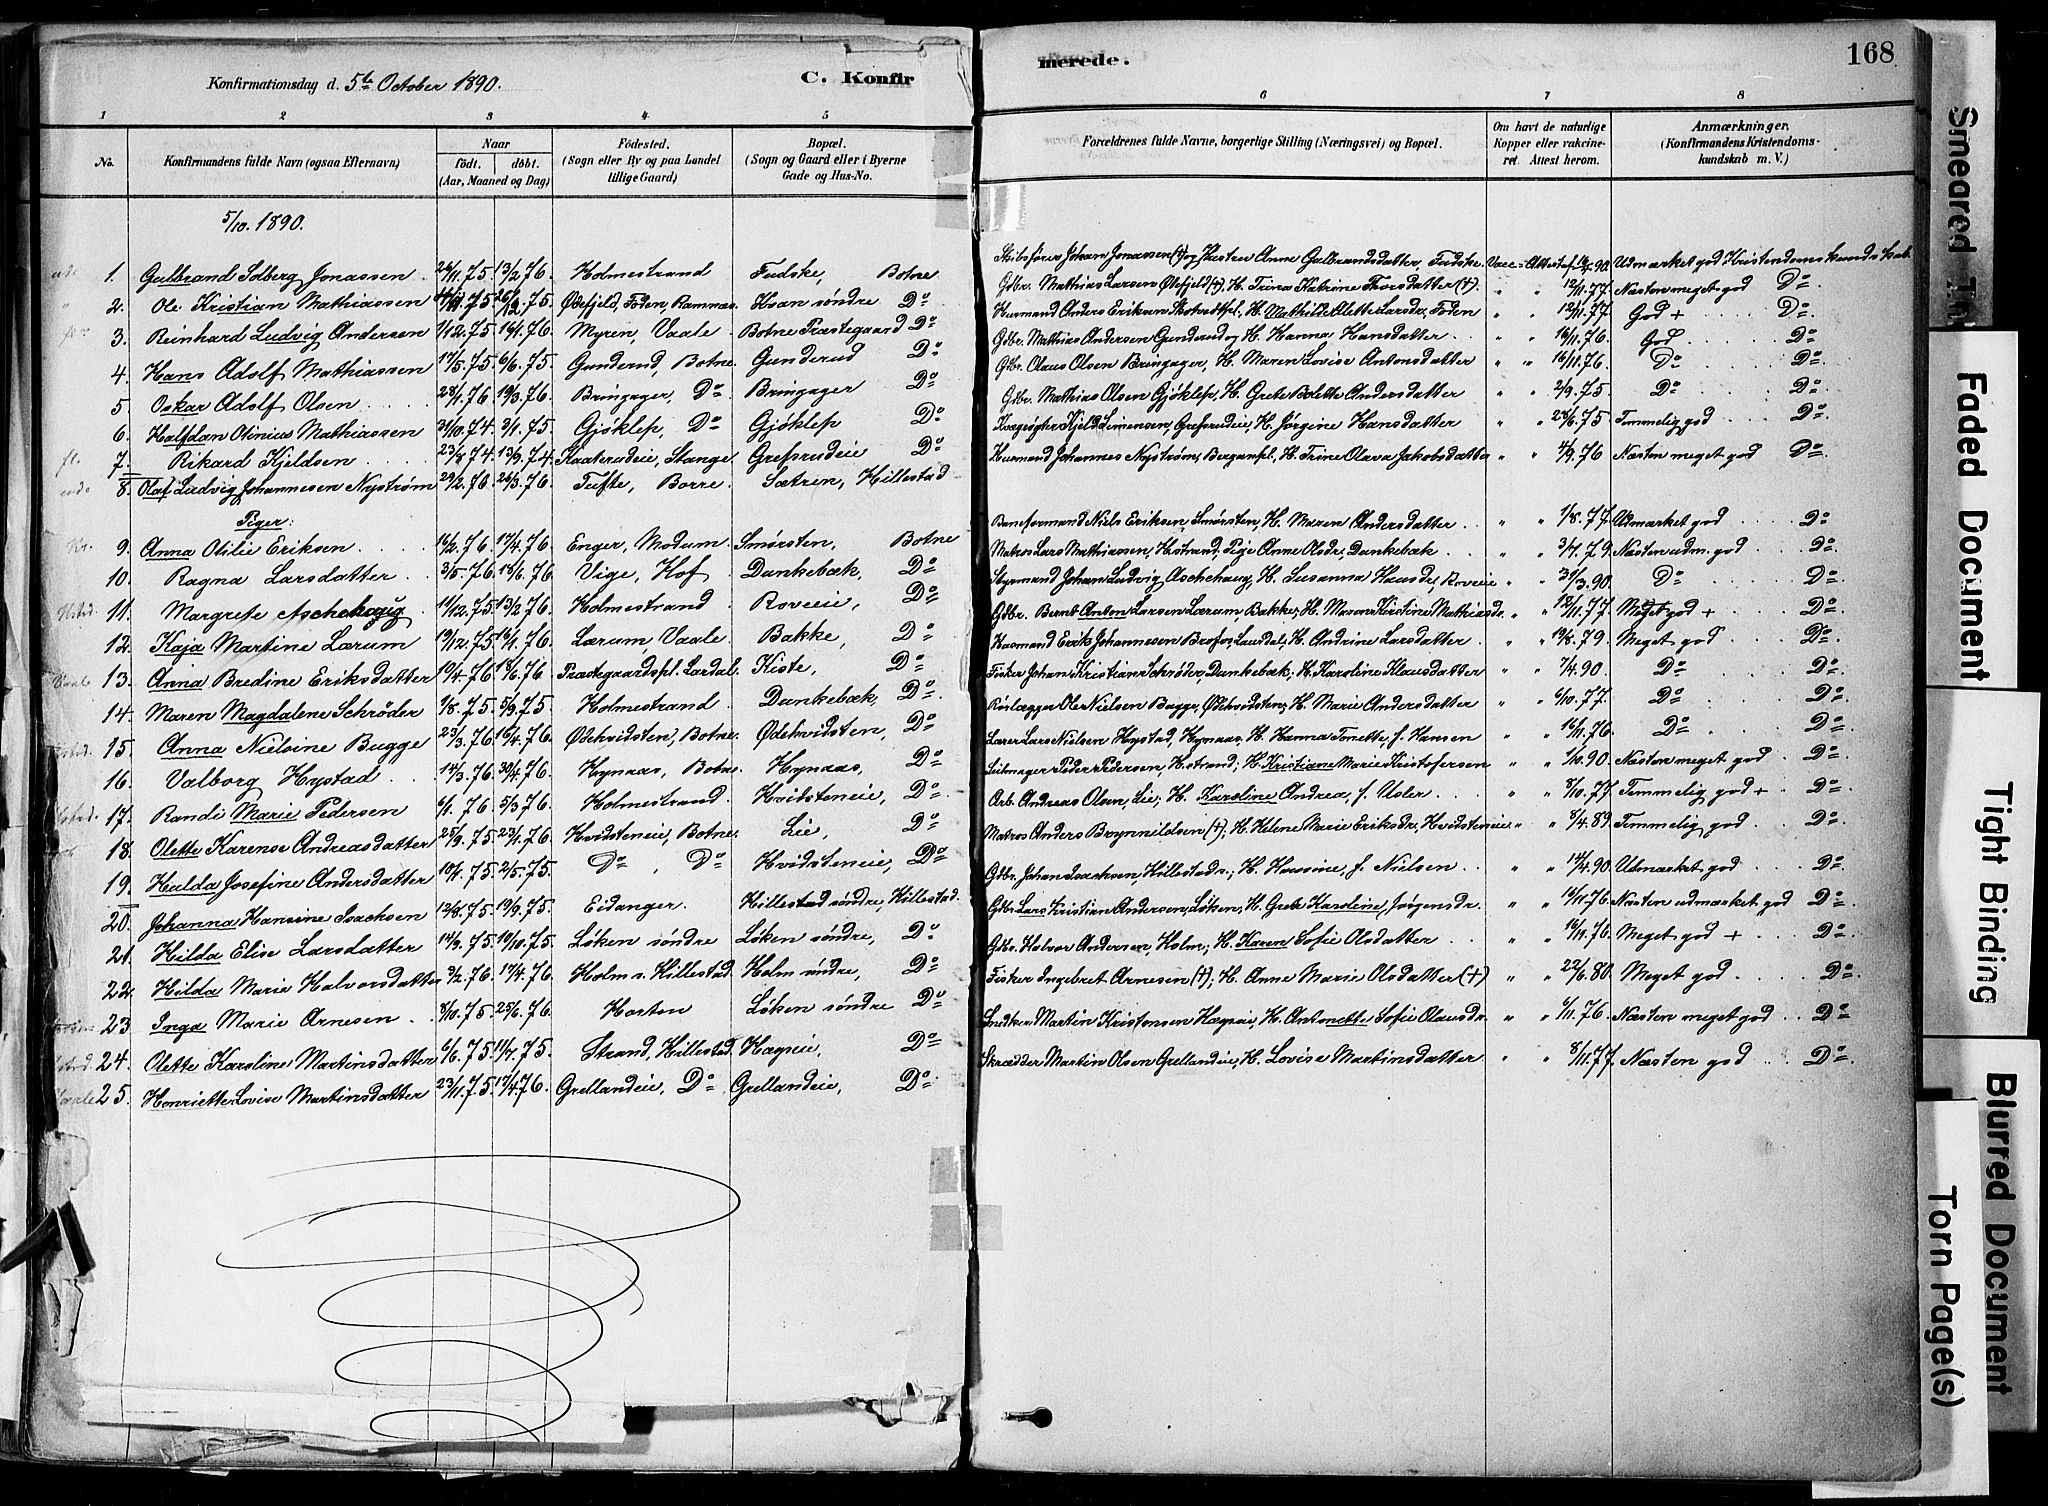 168
Konfirmationsdag d. 5te October 1890.
C. Konfir
merede.
1 2 3 4 5 6 7 8
No.
Konfirmandens fulde Navn (ogsaa Efternavn)
Naar
født. døbt.
(Aar, Maaned og Dag)
Fødested.
(Sogn eller By og paa Landet
tillige Gaard)
Bopæl.
(Sogn og Gaard eller i Byerne
Gade og Hus-No.
Forældrenes fulde Navne, borgerlige Stilling (Næringsvei) og Bopæl.
Om havt de naturlige
Kopper eller vakcine-
ret. Attest herom.
Anmærkninger.
(Konfirmandens Kristendoms-
kundskab m. V.)
5/10. 1890.
1. Gulbrand Solberg Jonassen 13/2.76. Holmestrand Botne Udmærket god Kristendomskundskab
2. Ole Kristian Mathiassen Kvan søndre Do 12/11.77. Næsten meget god Do
3. Reinhard Ludvig Andersen 1/12.75 16/1.76. Myren, Vaale Botne Præstegaard Do God + Do
4. Hans Adolf Mathiassen 17/5.75 6/6.75. Gunderud, Botne Gunderud Do Gbr. Mathias Andersen Gunderud og H. Hanna Hansdatter 16/11.76. God Do
5. Oskar Adolf Olsen 28/1.76 19/3.76. Bringager, Do Bringager Do Gbr. Olaus Olsen Bringager, H. Maren Lovise Antonsdatter 16/11.76. Do Do
6. Halfdan Otinius Mathiassen 31/10.74. 3/1.75. Gjøklep, Do Gjøklep Do Gbr. Mathias Olsen Gjøklep, H. Grete Bolette Andersdatter 2/9.75 Do Do
7. Rikard Kjeldsen 13/9.74. Stange. Grefsrudeie Do H. Jørgine Hansdatter 28/6.75 Temmelig god Do
8. Olaf Ludvig Johannesen Nystrøm 29/2.76 26/3.76. Tufte, Borre. Sætren, Hillestad Husmand Johannes Nystrøm, H. Trine Olava Jakobsdatter 4/9.76 Næsten meget god Do
Piger:
9. Anna Otilie Eriksen 16/2.76 17/4.76. Enger, Modum. Smørsten, Botne Baneformand Niels Eriksen, Smørsten, H. Maren Andersdatter 1/8.77. Udmærket god Do
10. Ragna Larsdatter 3/5.76. 18/6.76. Vige, Hof Dunkebæk, Do Matros Lars Mathiassen, Hstrand, Pige Anne Olsdr, Dunkebæk 3/7.79. Næsten udm. god Do
11. Margrete Aschehaug 11/12.75. 13/2.76. Holmestrand Roveie, Do Styrmand Johan Ludvig Aschehaug, H. Susanna Hansdr, Roveie 31/3.90. Do Do
12. Kaja Martine Lærum 19/12.75. 16/1.76. Lærum Vaale Bakke, Do Gbr. Bernt Anton Larsen Lærum, Bakke; 12/11.77 Meget god + Do
13. Anna Bredine Eriksdatter 19/4.76 18/6.76 Præstegaardspl. Lardal. Kiste, Do Husmand Erik Johannesen H. Andrine Larsdatter 19/8.79. Meget god Do
14. Maren Magdalene Schrøder 1/8.75. 5/9.75. Holmestrand Dunkebæk, Do Fisker Johan Kristian Schrøder, Dunkebæk, H. Karoline Klausdatter 7/4.90. Do Do
15. Anna Nielsine Bugge 23/3.76. 16/4.76. Ødekvidsten, Botne. Ødekvidsten, Do Rørlægger Ole Nielsen Bugge, Ødekvidsten; H. Marie Andersdatter 6/10.77. Do Do
16. Valborg Hystad 14/3.76. 30/4.76. Hynaas, Botne. Hynaas, Do Lærer Lars Nielsen Hystad, Hynaas, H. Hanna Tonette, f. Hansen 16/11.76. Do Do
17. Randi Marie Pedersen 6/1.76. 5/3.76. Holmestrand Hvidsteneie, Do Seilmager Peder Pedersen, Hstrand; H. Kristiane Marie Kristofersen 1/10.90. Næsten meget god Do
18. Olette Karense Andreasdatter 25/9.75. 23/1.76. Hvidsteneie, Botne. Lie, Do Arb. Andreas Olsen, Lie; H. Karoline Andrea, f. 8/10.77 Temmelig god + Do
19. Hulda Josefine Andersdatter 10/4.75. 2/5.75. Do, Do Hvidsteneie, Do Matros Anders Brynnildsen (+); H. Helene Marie Eriksdr, Hvidsteneie 8/4.89 Temmelig god Do
20. Johanna Hansine Isachsen 12/8.75. 19/9.75. Eidanger. Hillestad søndre, Hillestad Gbr. Johan Isachsen, Hillestad; H. Hansine, f. Nielsen 17/4.90 Udmærket god Do
21. Hilda Elise Larsdatter 14/9.75. 19/10.75. Løken søndre Løken søndre, Do Gbr. Lars Kristian Andersen, Løken, H. Grete Karoline, Jørgensdr. 14/11.76. Næsten udmærket god Do
22. Hilda Marie Halvorsdatter 3/2.76. 17/4.76. Holm s. Hillestad Holm søndre, Do Gbr. Halvor Andersen, Holm; H. Karen Sofie Olsdatter 16/11.76. Meget god + Do
23. Inga Marie Arnesen 8/10.75. 25/6.76. Horten Løken søndre Do Fisker Ingebret Arnesen (+); H. Anne Marie Olsdatter (+) 22/6.80 Meget god Do
24. Olette Karoline Martinsdatter 6/6.75. 11/7.75. Strand, Hillestad Do Snedker Martin Kristensen H. Antonette Sofie Olausdr. 6/11.76. Næsten meget god Do
25. Henriette Lovise Martinsdatter 23/11.75. 17/4.76. Grellandeie, Do Grellandeie, Do Skrædder Martin Olsen Grellandeie, H. Lovise Martinsdatter 8/11.77. Næsten god Do
Smeared
Faded Document
Tight Binding
Blurred Document
Torn Page(s)